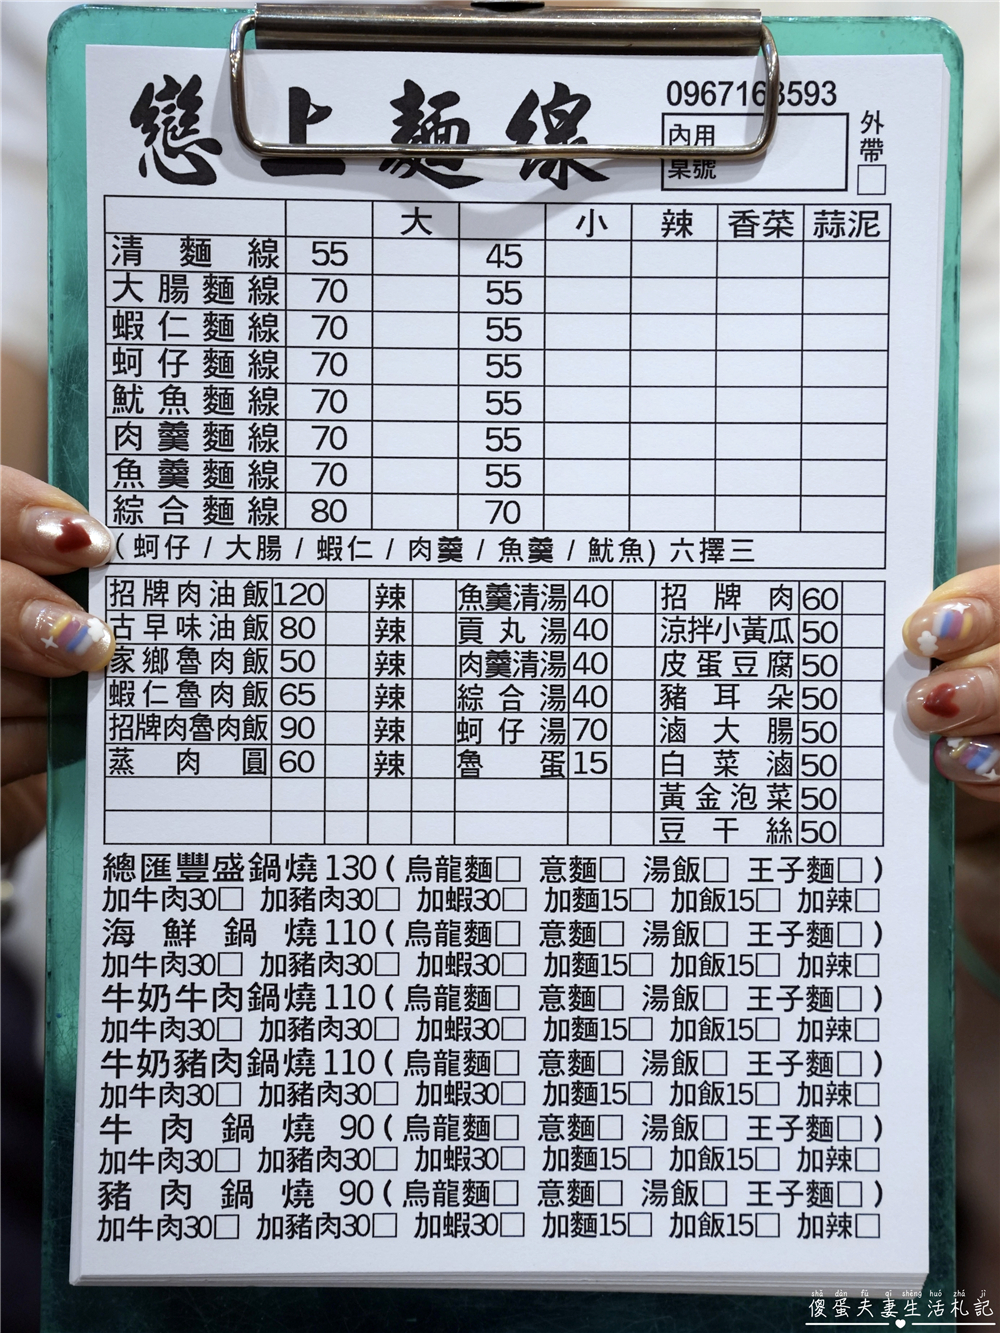 戀上麵線
0967163593
內用
桌號
外帶□
大 小 辣 香菜 蒜泥
清麵線 55 45
大腸麵線 70 55
蝦仁麵線 70 55
蚵仔麵線 70 55
魷魚麵線 70 55
肉羹麵線 70 55
魚羹麵線 70 55
綜合麵線 80 70
(蚵仔/大腸/蝦仁/肉羹/魚羹/魷魚)六擇三
招牌肉油飯 120 辣 魚羹清湯 40 招牌肉 60
古早味油飯 80 辣 貢丸湯 40 涼拌小黃瓜 50
家鄉魯肉飯 50 辣 肉羹清湯 40 皮蛋豆腐 50
蝦仁魯肉飯 65 辣 綜合湯 40 豬耳朵 50
招牌肉魯肉飯 90 辣 蚵仔湯 70 滷大腸 50
蒸肉圓 60 辣 魯蛋 15 白菜滷 50
黃金泡菜 50
豆干絲 50
總匯豐盛鍋燒 130(烏龍麵□ 意麵□ 湯飯□ 王子麵□)
加牛肉30□ 加豬肉30□ 加蝦30□ 加麵15□ 加飯15□ 加辣□
海鮮鍋燒 110(烏龍麵□ 意麵□ 湯飯□ 王子麵□)
加牛肉30□ 加豬肉30□ 加蝦30□ 加麵15□ 加飯15□ 加辣□
牛奶牛肉鍋燒 110(烏龍麵□ 意麵□ 湯飯□ 王子麵□)
加牛肉30□ 加豬肉30□ 加蝦30□ 加麵15□ 加飯15□ 加辣□
牛奶豬肉鍋燒 110(烏龍麵□ 意麵□ 湯飯□ 王子麵□)
加牛肉30□ 加豬肉30□ 加蝦30□ 加麵15□ 加飯15□ 加辣□
牛肉鍋燒 90(烏龍麵□ 意麵□ 湯飯□ 王子麵□)
加牛肉30□ 加豬肉30□ 加蝦30□ 加麵15□ 加飯15□ 加辣□
豬肉鍋燒 90(烏龍麵□ 意麵□ 湯飯□ 王子麵□)
加牛肉30□ 加豬肉30□ 加蝦30□ 加麵15□ 加飯15□ 加辣□
shǎ dàn fū qī shēng huó zhá jì
傻蛋夫妻生活札記